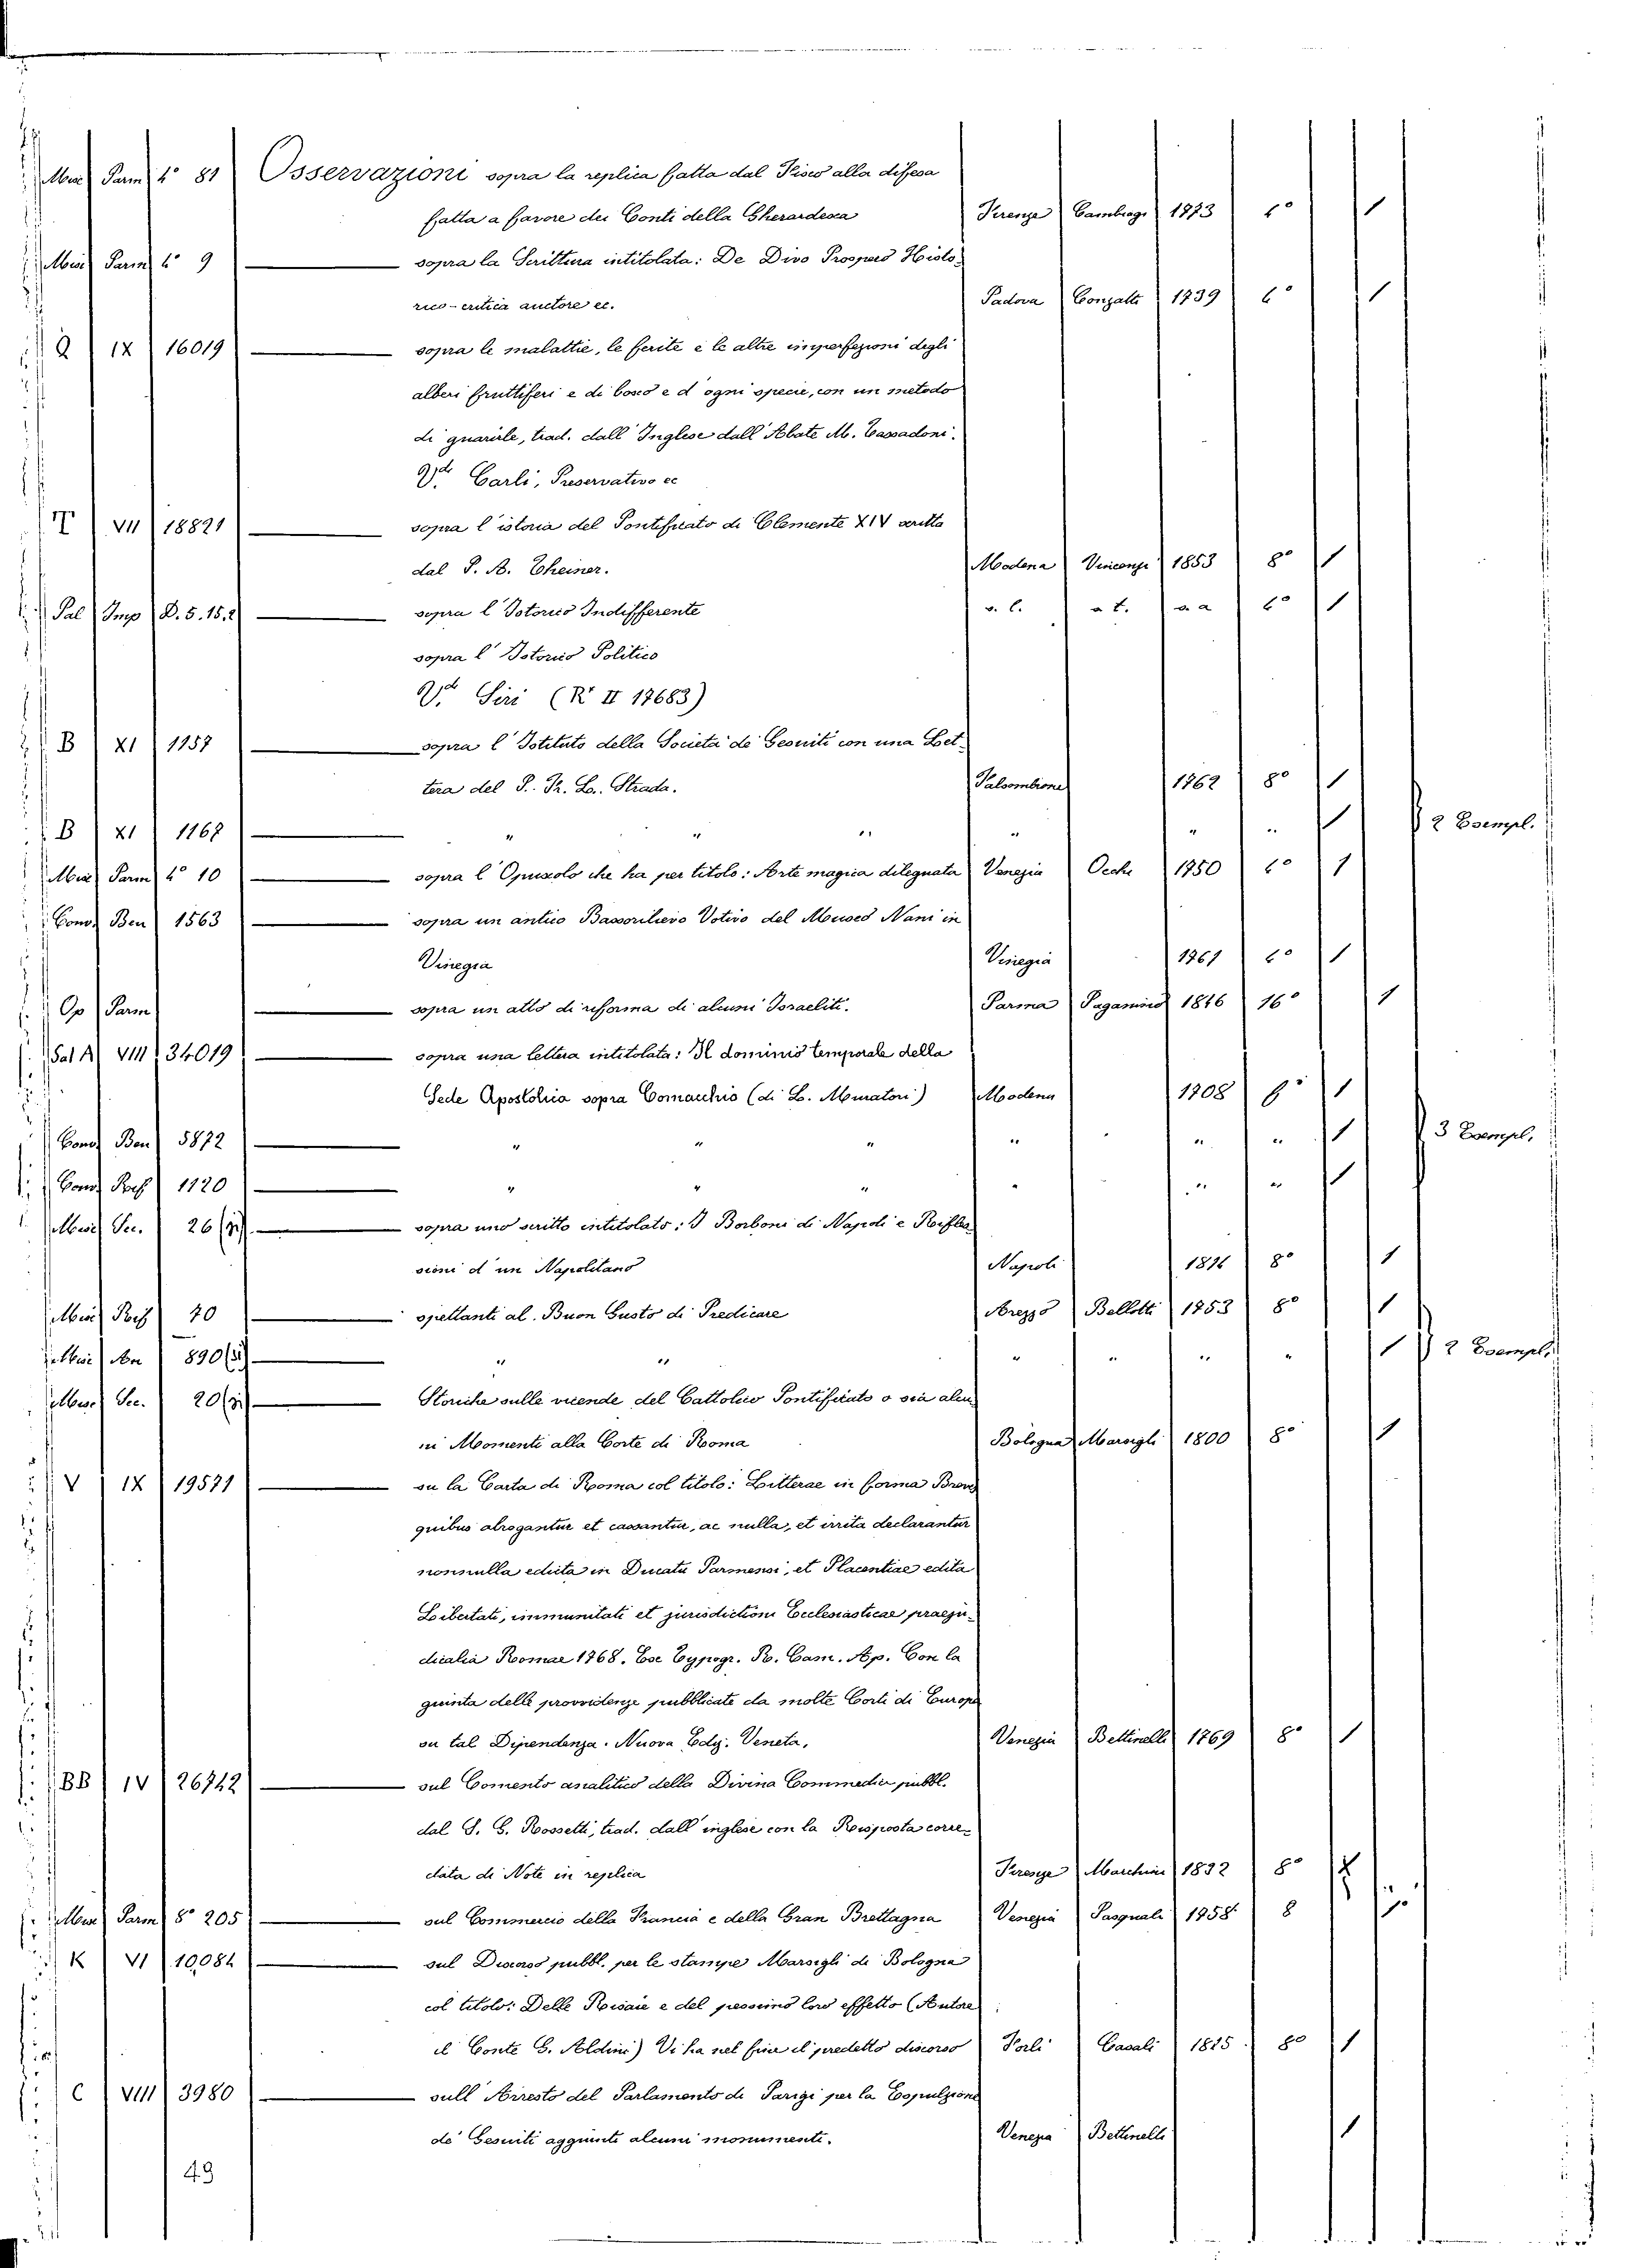 Misc Parm 4° 81 Osservazioni sopra la replica fatta dal Fisco alla difesa
fatta a favore dei Conti della Gherardesca Firenze Cambiagi 1773 4° 1
Misc Parm 4° 9 sopra la Scrittura intitolata: De Divo Prospero Histo-
rico-critica auctore ec. Padova Conzatti 1739 4° 1
Q IX 16019 sopra le malattie, le ferite e le altre imperfezioni degli
alberi fruttiferi e di bosco e d'ogni specie, con un metodo
di guarirle, trad. dall'Inglese dall'Abate M.
Vd. Carli, Preservativo ec
T VII 18821 sopra l'istoria del Pontificato di Clemente XIV scritta
dal P. A. Theiner. Modena Vincenzi 1853 8° 1
Pal Imp D. 5. 15,2 sopra l'Istorico Indifferente s. l. s. t. s. a 4° 1
sopra l'Istorico Politico
Vd. Siri (R II 17683)
B XI 1157 sopra l'Istituto della Società de' Gesuiti con una Let-
tera del P. Fr. Lo. Strada. Palsombrone 1762 8° 1
B XI 1167 " " " " " " 1 2 Esempl.
Misc Parm 4° 10 sopra l'Opuscolo che ha per titolo: Arte magica dileguata Venezia Occhi 1750 4° 1
Conv Ben 1563 sopra un antico Bassorilievo Votivo del Museo Nani in
Vinegia Vinegia 1761 4° 1
Op Parm sopra un atto di riforma di alcuni Israeliti. Parma Paganino 1846 16° 1
Sal A VIII 34019 sopra una lettera intitolata: Il dominio temporale della
Sede Apostolica sopra Comacchio (di L. Muratori) Modena 1708 1
Conv Ben 5872 " " " " " " 1 3 Esempl.
Conv 1120 " " " " " " 1
Misc Sec. sopra uno scritto intitolato: I Borboni di Napoli e Rifles
sioni d'un Napolitano Napoli 8° 1
Misc 70 spettanti al Buon Gusto di Predicare Arezzo Bellotti 1753 8° 1
Misc 890 " " " " " " 1 2 Esempl.
Misc Sec. Storiche sulle vicende del Cattolico Pontificato o sia alcu
ni Momenti alla Corte di Roma Bologna Marsigli 1800 8° 1
V IX 19571 su la Carta di Roma col titolo: Litterae in forma Brev
quibus abrogantur et cassantur, ac nulla, et irrita declarantur
nonnulla edicta in Ducatu Parmensi, et Placentiae edita
Libertati, immunitati et jurisdictioni Ecclesiasticae praeju-
dicalia Romae 1768. Ex Typogr. R. Cam. Ap. Con la
giunta delle provvidenze pubblicate da molte Corti di Europa
su tal Dipendenza. Nuova Ediz. Veneta. Venezia Bettinelli 1769 8° 1
BB IV 26742 sul Comento analitico della Divina Commedia pubbl.
dal S. G. Rossetti, trad. dall'inglese con la Risposta corre-
data di Note in replica Firenze Marchini 1832 8°
Misc Parm 8° 205 sul Commercio della Francia e della Gran Brettagna Venezia Pasquali 1758 8
K VI 10,084 sul Discorso pubbl. per le stampe Marsigli di Bologna
col titolo: Delle Risaie e del pessimo loro effetto (Autore
il Conte G. Aldini) Vi ha nel fine il predetto discorso Forlì Casali 1825 8° 1
C VIII 3980 sull'Arresto del Parlamento di Parigi per la Espulzione
de' Gesuiti aggiunti alcuni monumenti. Venezia Bettinelli 1
49